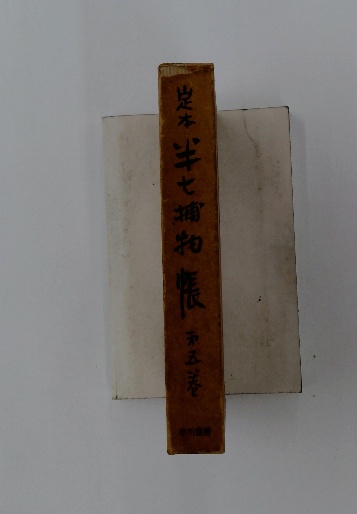 定本
半七捕物帳
第五巻